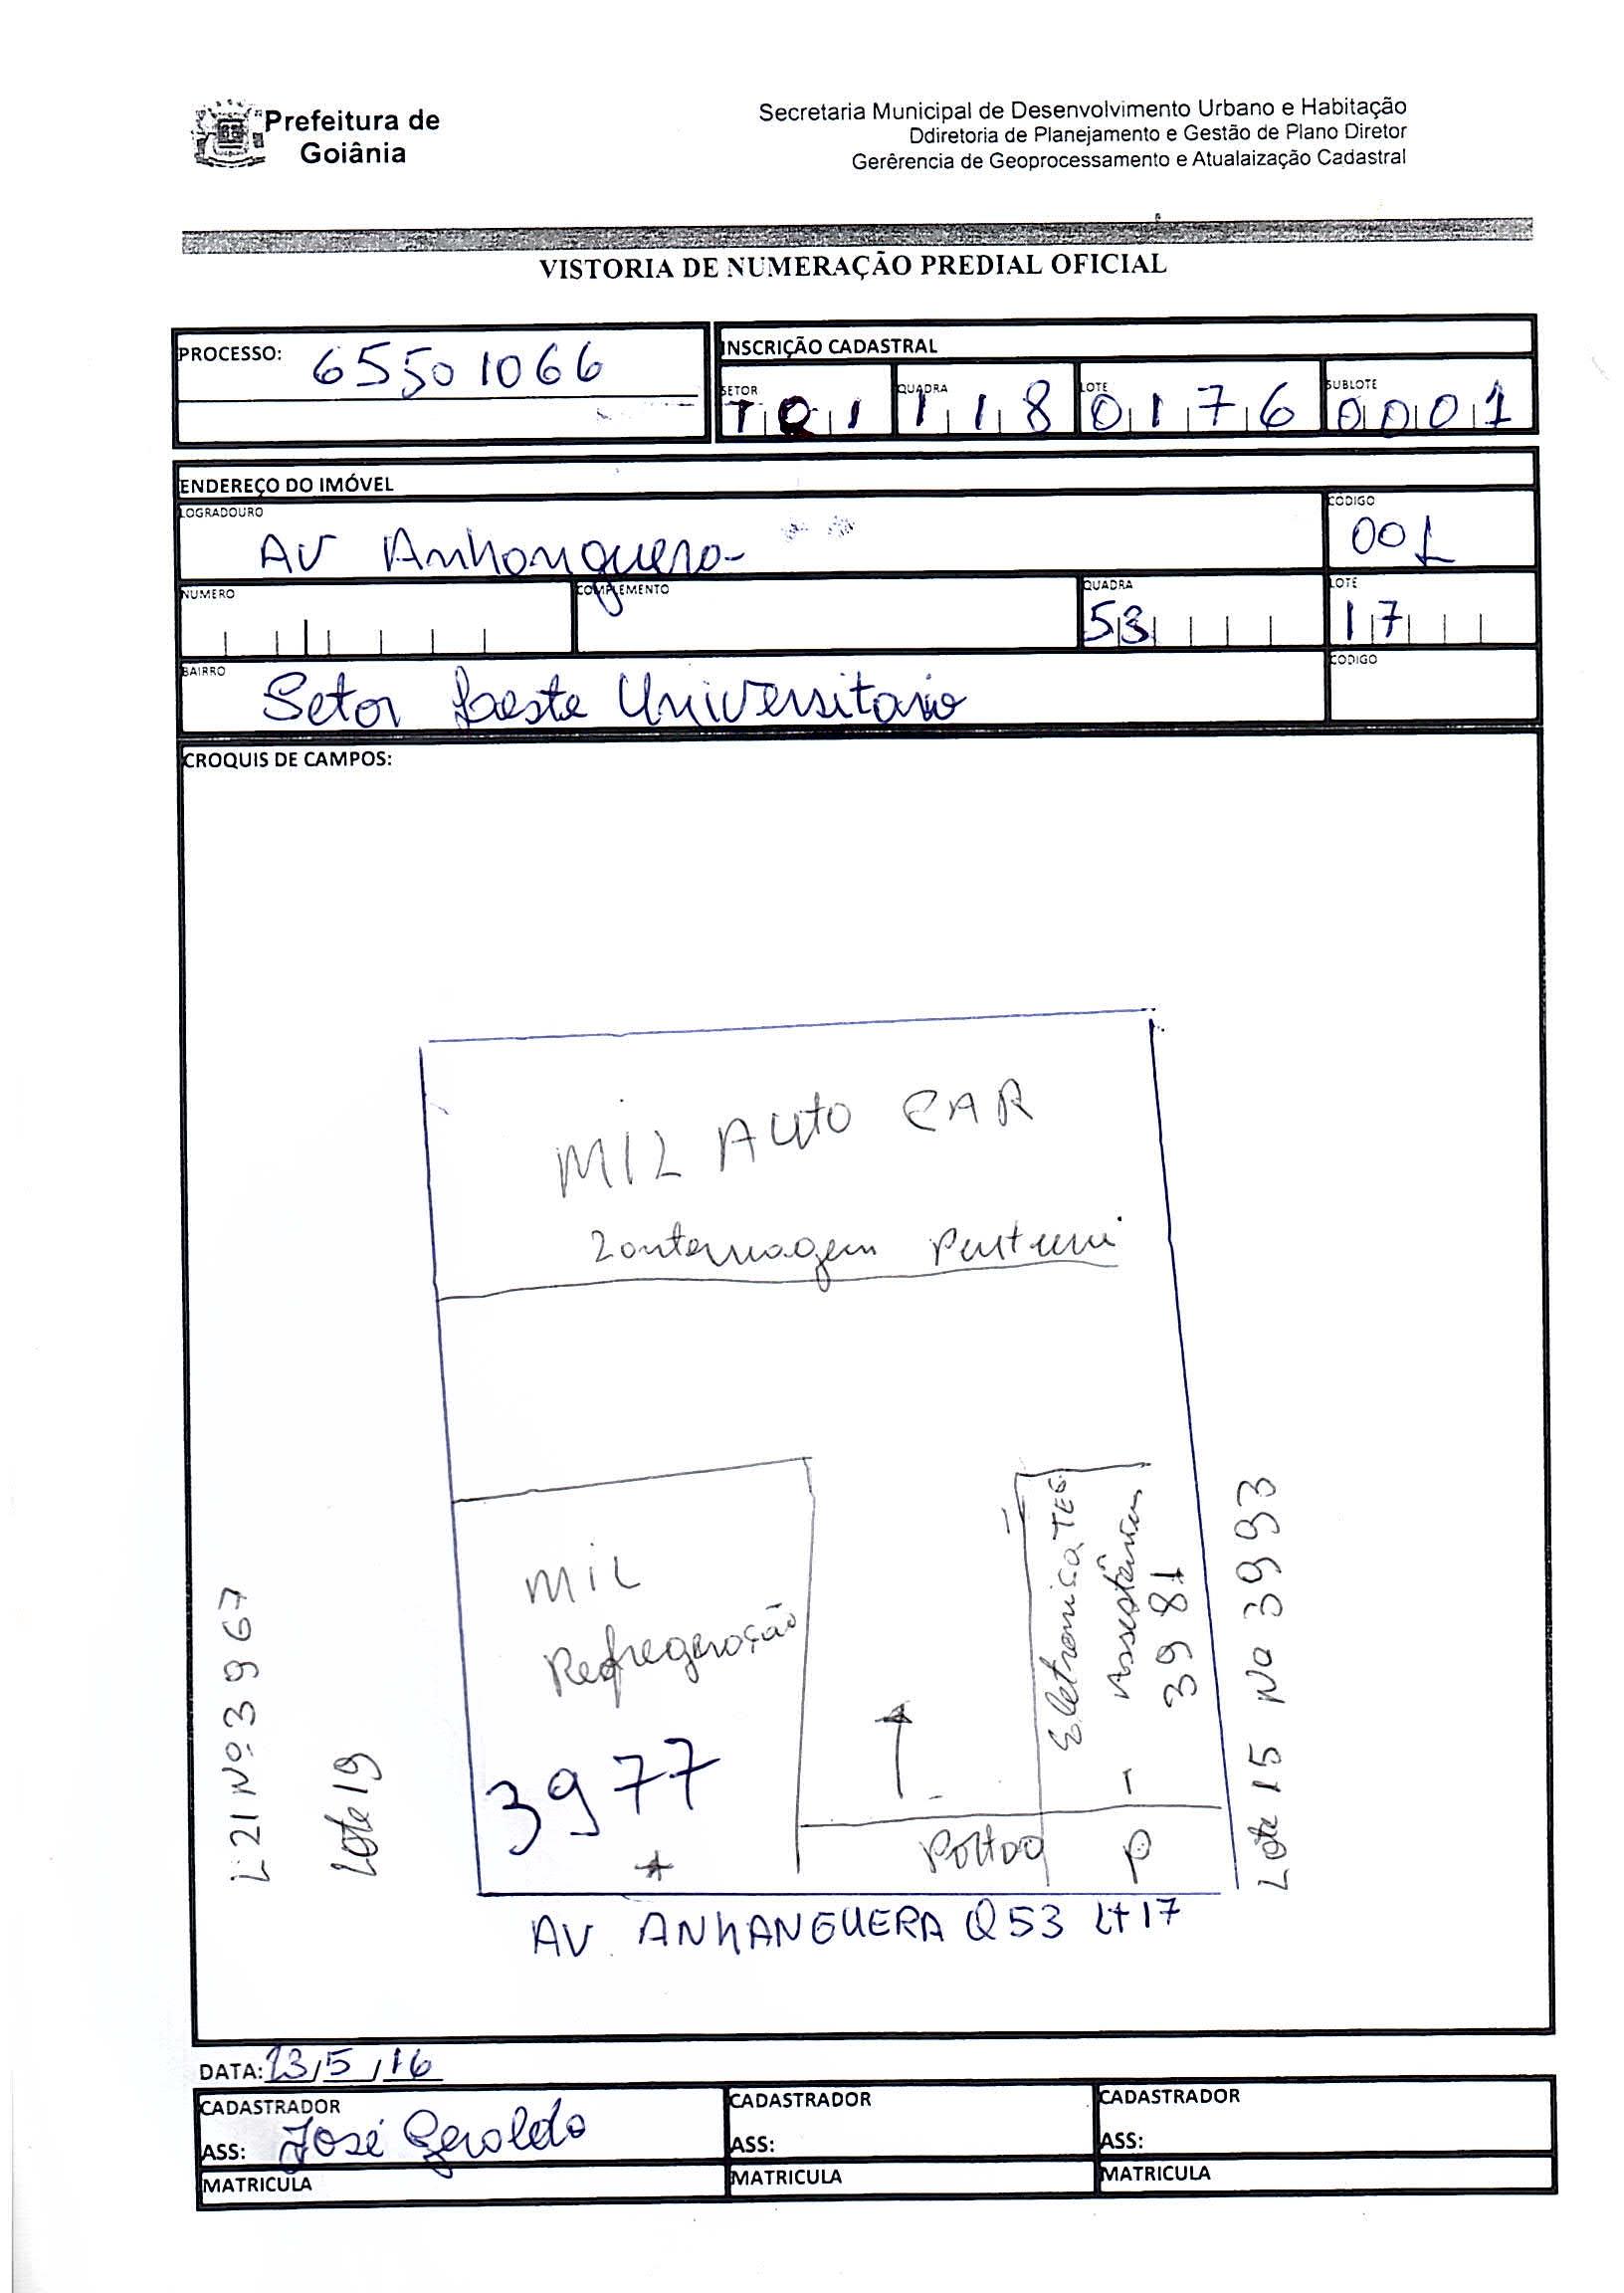 Prefeitura de
Goiânia
Secretaria Municipal de Desenvolvimento Urbano e Habitação
Ddiretoria de Planejamento e Gestão de Plano Diretor
Gerêrencia de Geoprocessamento e Atualaização Cadastral
VISTORIA DE NUMERAÇÃO PREDIAL OFICIAL
PROCESSO: 65501066
INSCRIÇÃO CADASTRAL
SETOR QUADRA LOTE SUBLOTE
101 118 0176 0001
ENDEREÇO DO IMÓVEL
LOGRADOURO CODIGO
AV Anhanguera 001
NUMERO COMPLEMENTO QUADRA LOTE
53 17
BAIRRO CODIGO
Setor Leste Universitario
CROQUIS DE CAMPOS:
MIL AUTO CAR
Lanternagem
MIL
Refregeração
3977
Eletronica TEC.
Assistência
3981
Portão P
L 21 Nº: 3967
Lote 19
Lote 15 No 3993
AV. ANHANGUERA Q 53 Lt 17
DATA: 13/5/16
CADASTRADOR CADASTRADOR CADASTRADOR
ASS: José Geraldo ASS: ASS:
MATRICULA MATRICULA MATRICULA